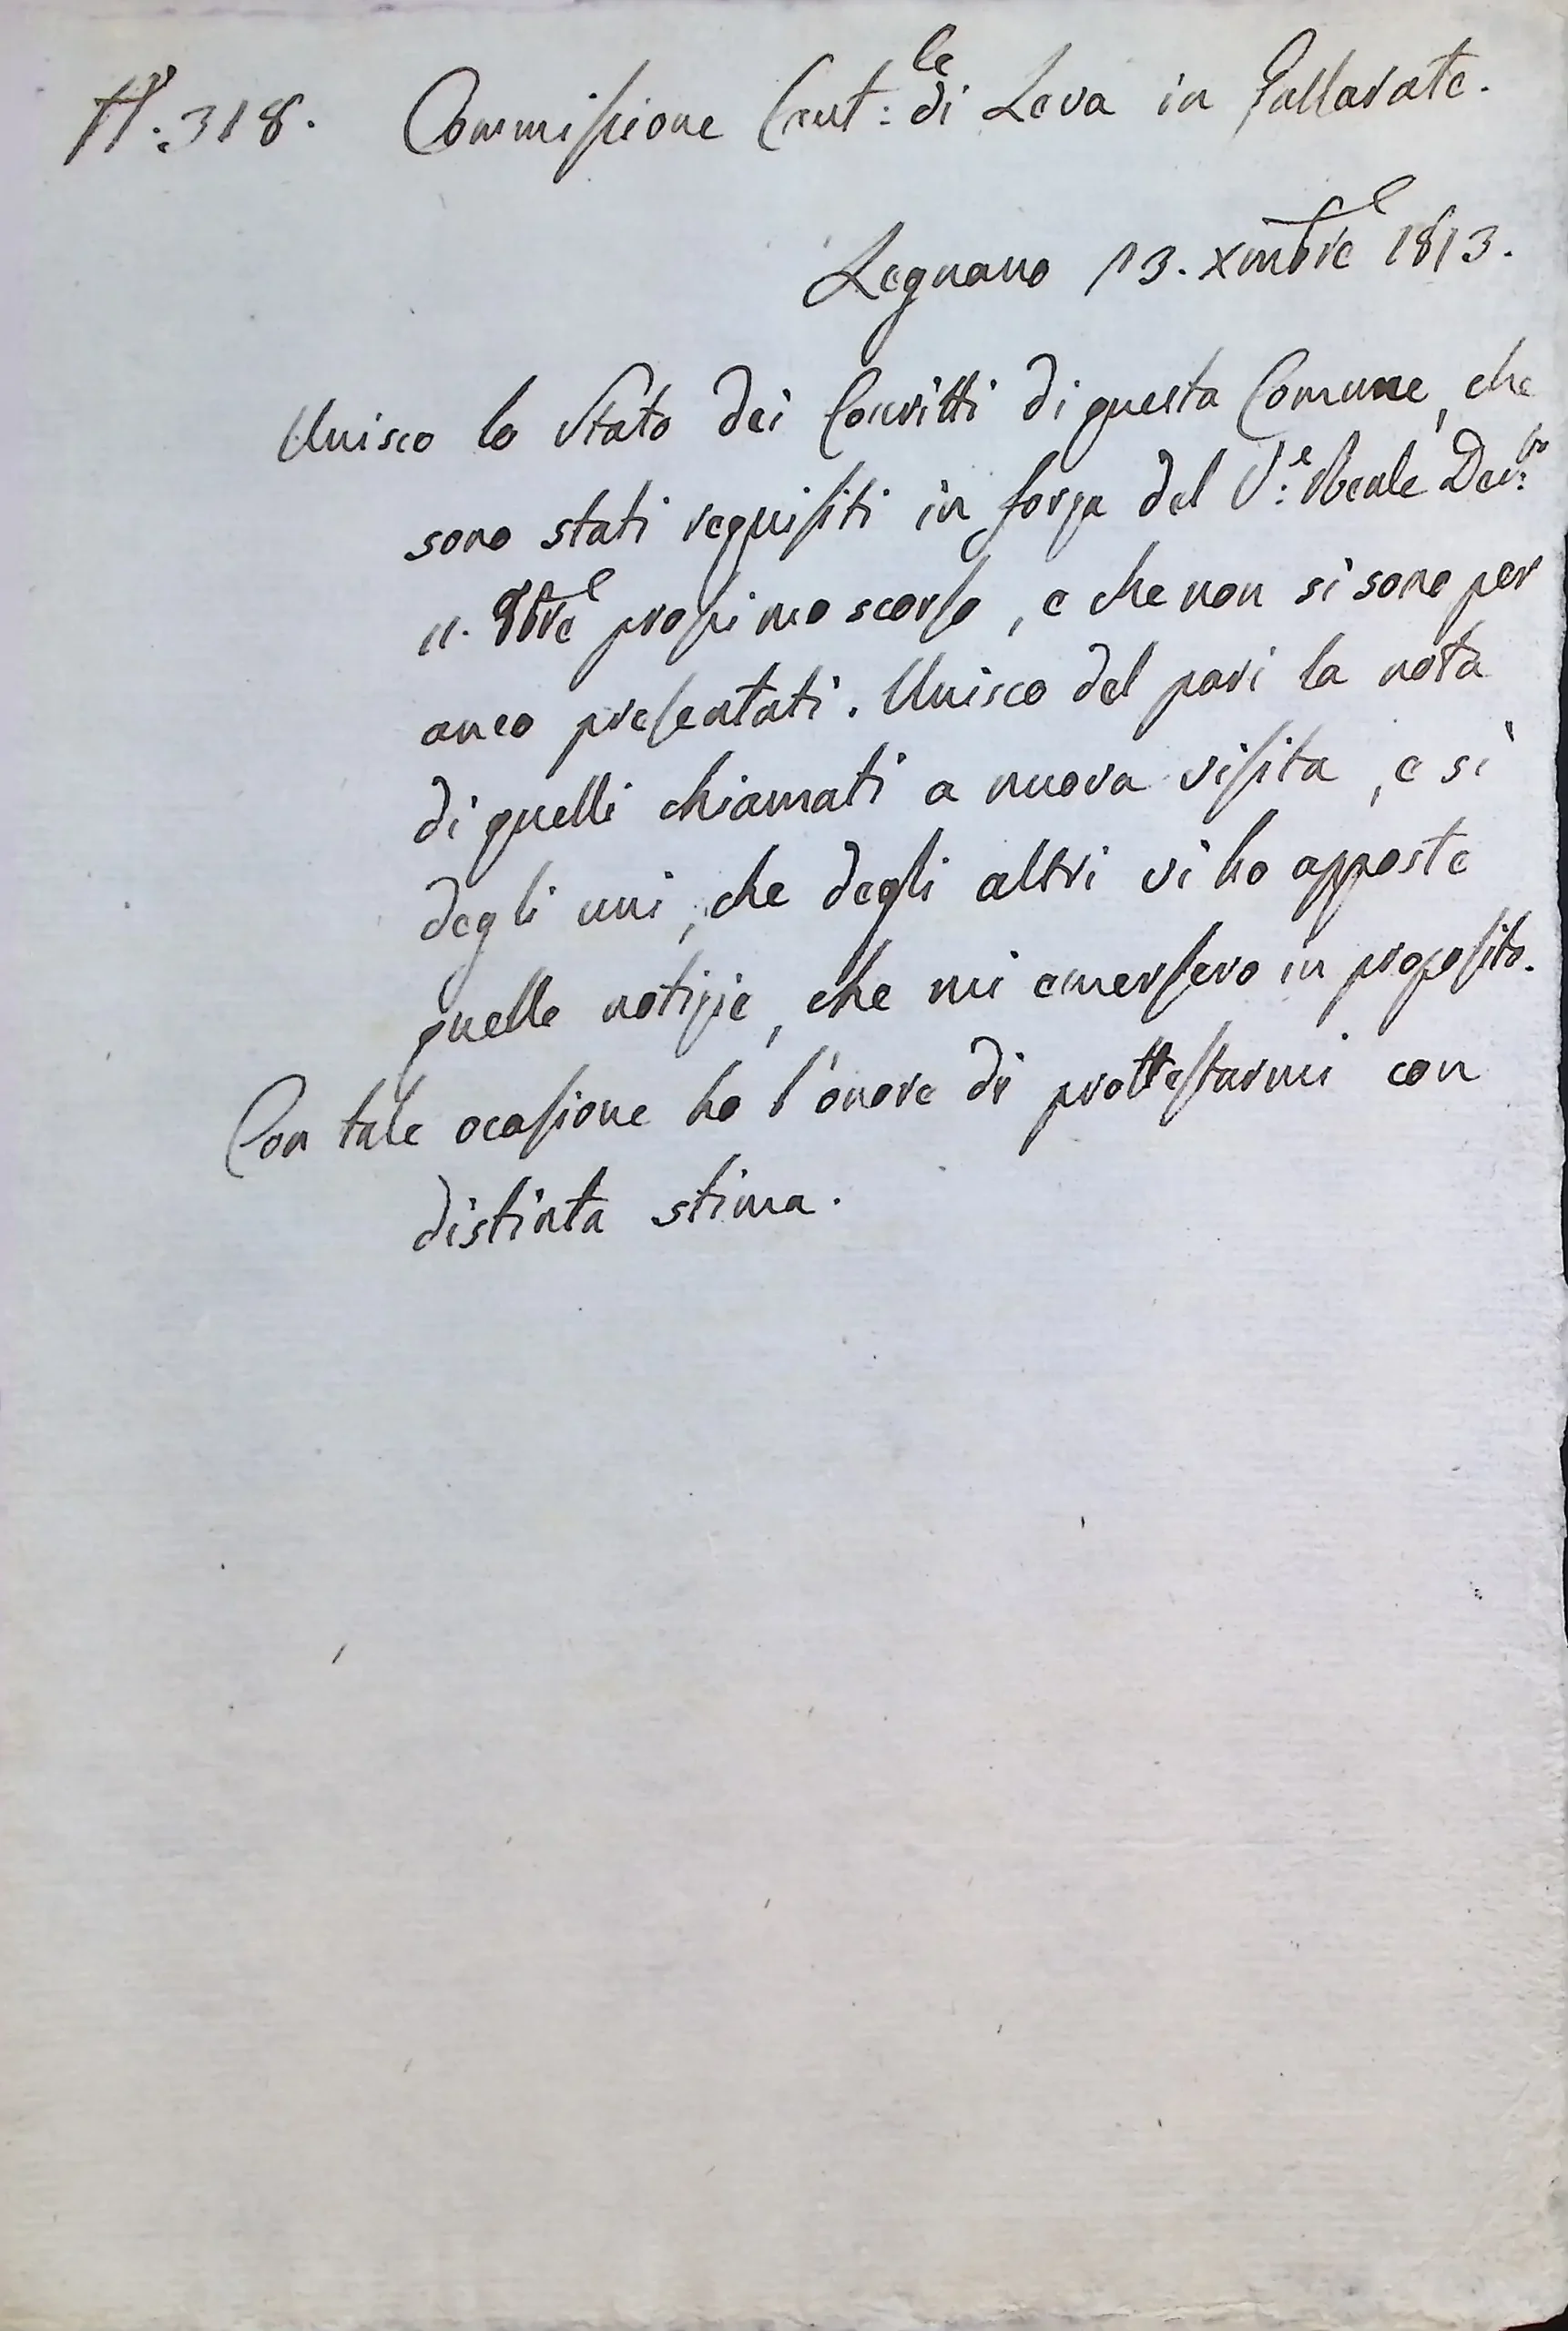 N.º 318. Commissione Cant:le di Leva in Gallarate.
Legnano 13. Xmbre 1813.
Unisco lo Stato dei Coscritti di questa Comune, che
sono stati requisiti in forza del S:e Reale Dec:to
11. 8bre prossimo scorso, e che non si sono per
anco presentati. Unisco del pari la nota
di quelli chiamati a nuova visita, e sì
degli uni, che degli altri vi ho apposte
quelle notizie, che mi emersero in proposito.
Con tale ocasione ho l'onore di prottestarmi con
distinta stima.